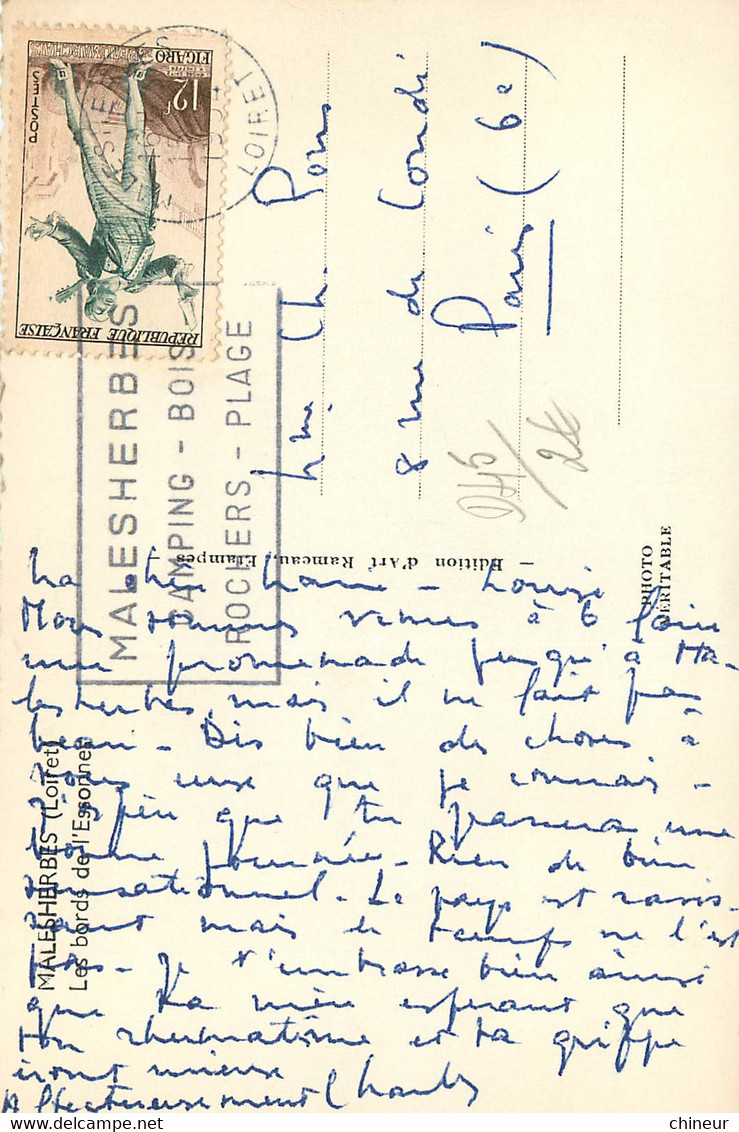 RÉPUBLIQUE FRANÇAISE
POSTES
12F
FIGARO
MALESHERBES
LOIRET
MALESHERBES
CAMPING - BOIS
ROCHERS - PLAGE
Mme Ch. Pons
8 rue de Condé
Paris (6e)
945/2€
— Edition d'Art Rameau, Etampes —
PHOTO
VÉRITABLE
MALESHERBES (Loiret)
Les bords de l'Essonne
Ma chère Marie-Louise
Nous sommes venus à 6 faire
une promenade jusqu'à Ma-
lesherbes, mais il ne fait pas
beau - Dis bien des choses à
tous ceux que je connais -
J'espère que tu passeras une
bonne journée - Rien de bien
sensationnel - Le pays est ravis-
sant mais le temps ne l'est
pas - Je t'embrasse bien ainsi
que ta mère espérant que
ton rhumatisme et ta grippe
iront mieux
Affectueusement Charles
chineur
www.delcampe.net